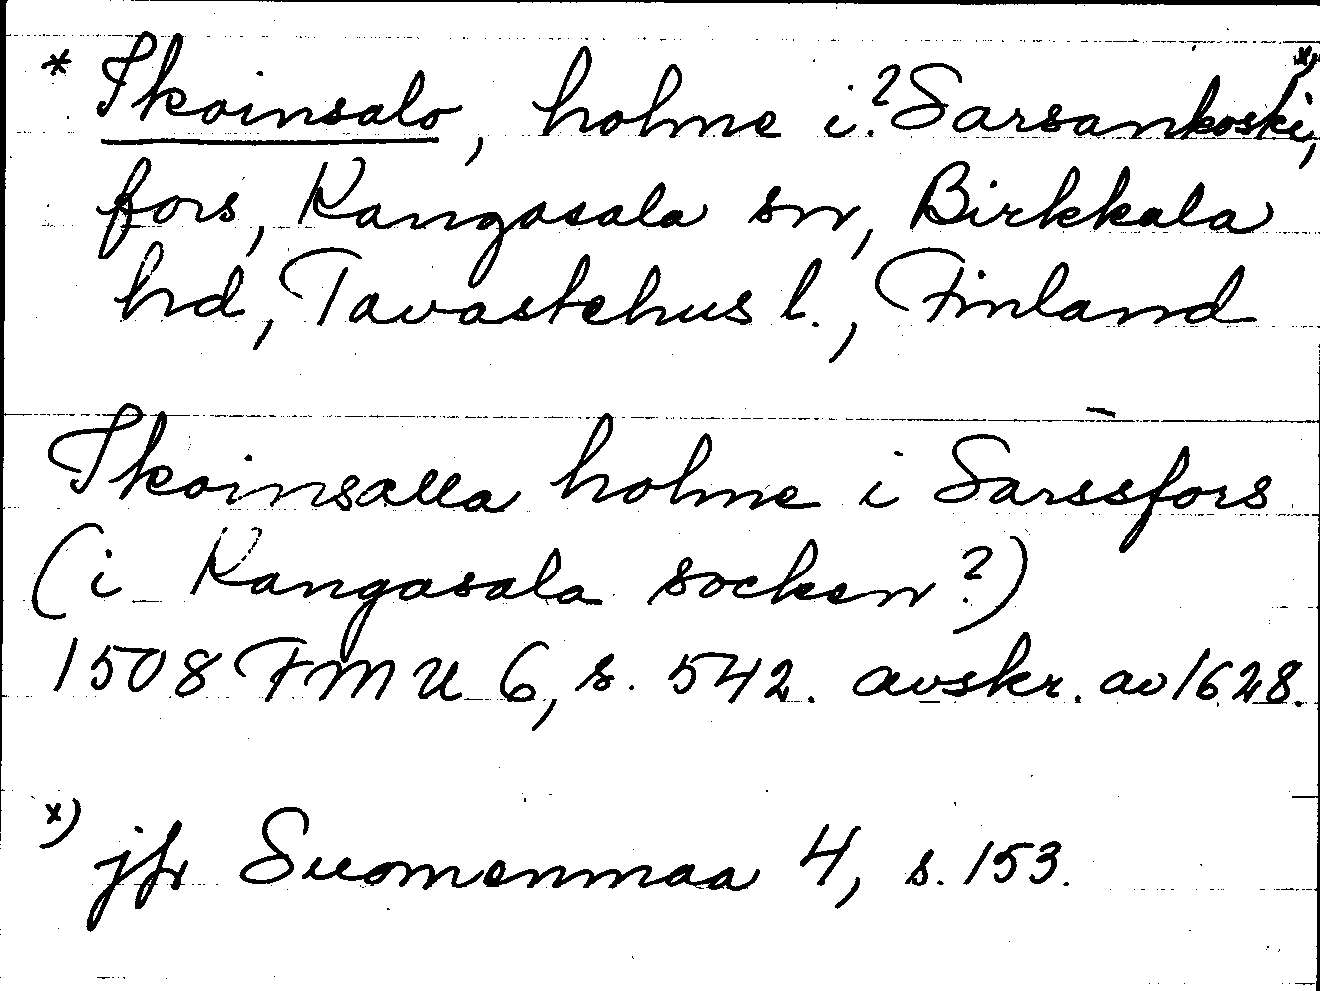 * Ikoinsalo, holme i ? Sarsankoski, x)
fors, Kangasala sn, Birkkala
hd, Tavastehus l., Finland
Ikoinsalla holme i Sarssfors
(i Kangasala socken?)
1508 FMU 6, s. 542. avskr. av 1628.
x) jfr Suomenmaa 4, s. 153.